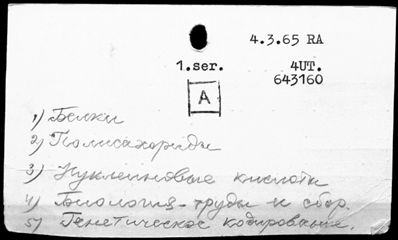 4.3.65 RA
1.ser. 4UT.
643160
A
1) Белки
2) Полисахориды
3) Нуклеиновые кислоты
4) Биология - труды и сбор.
5) Генетическое кодирование.